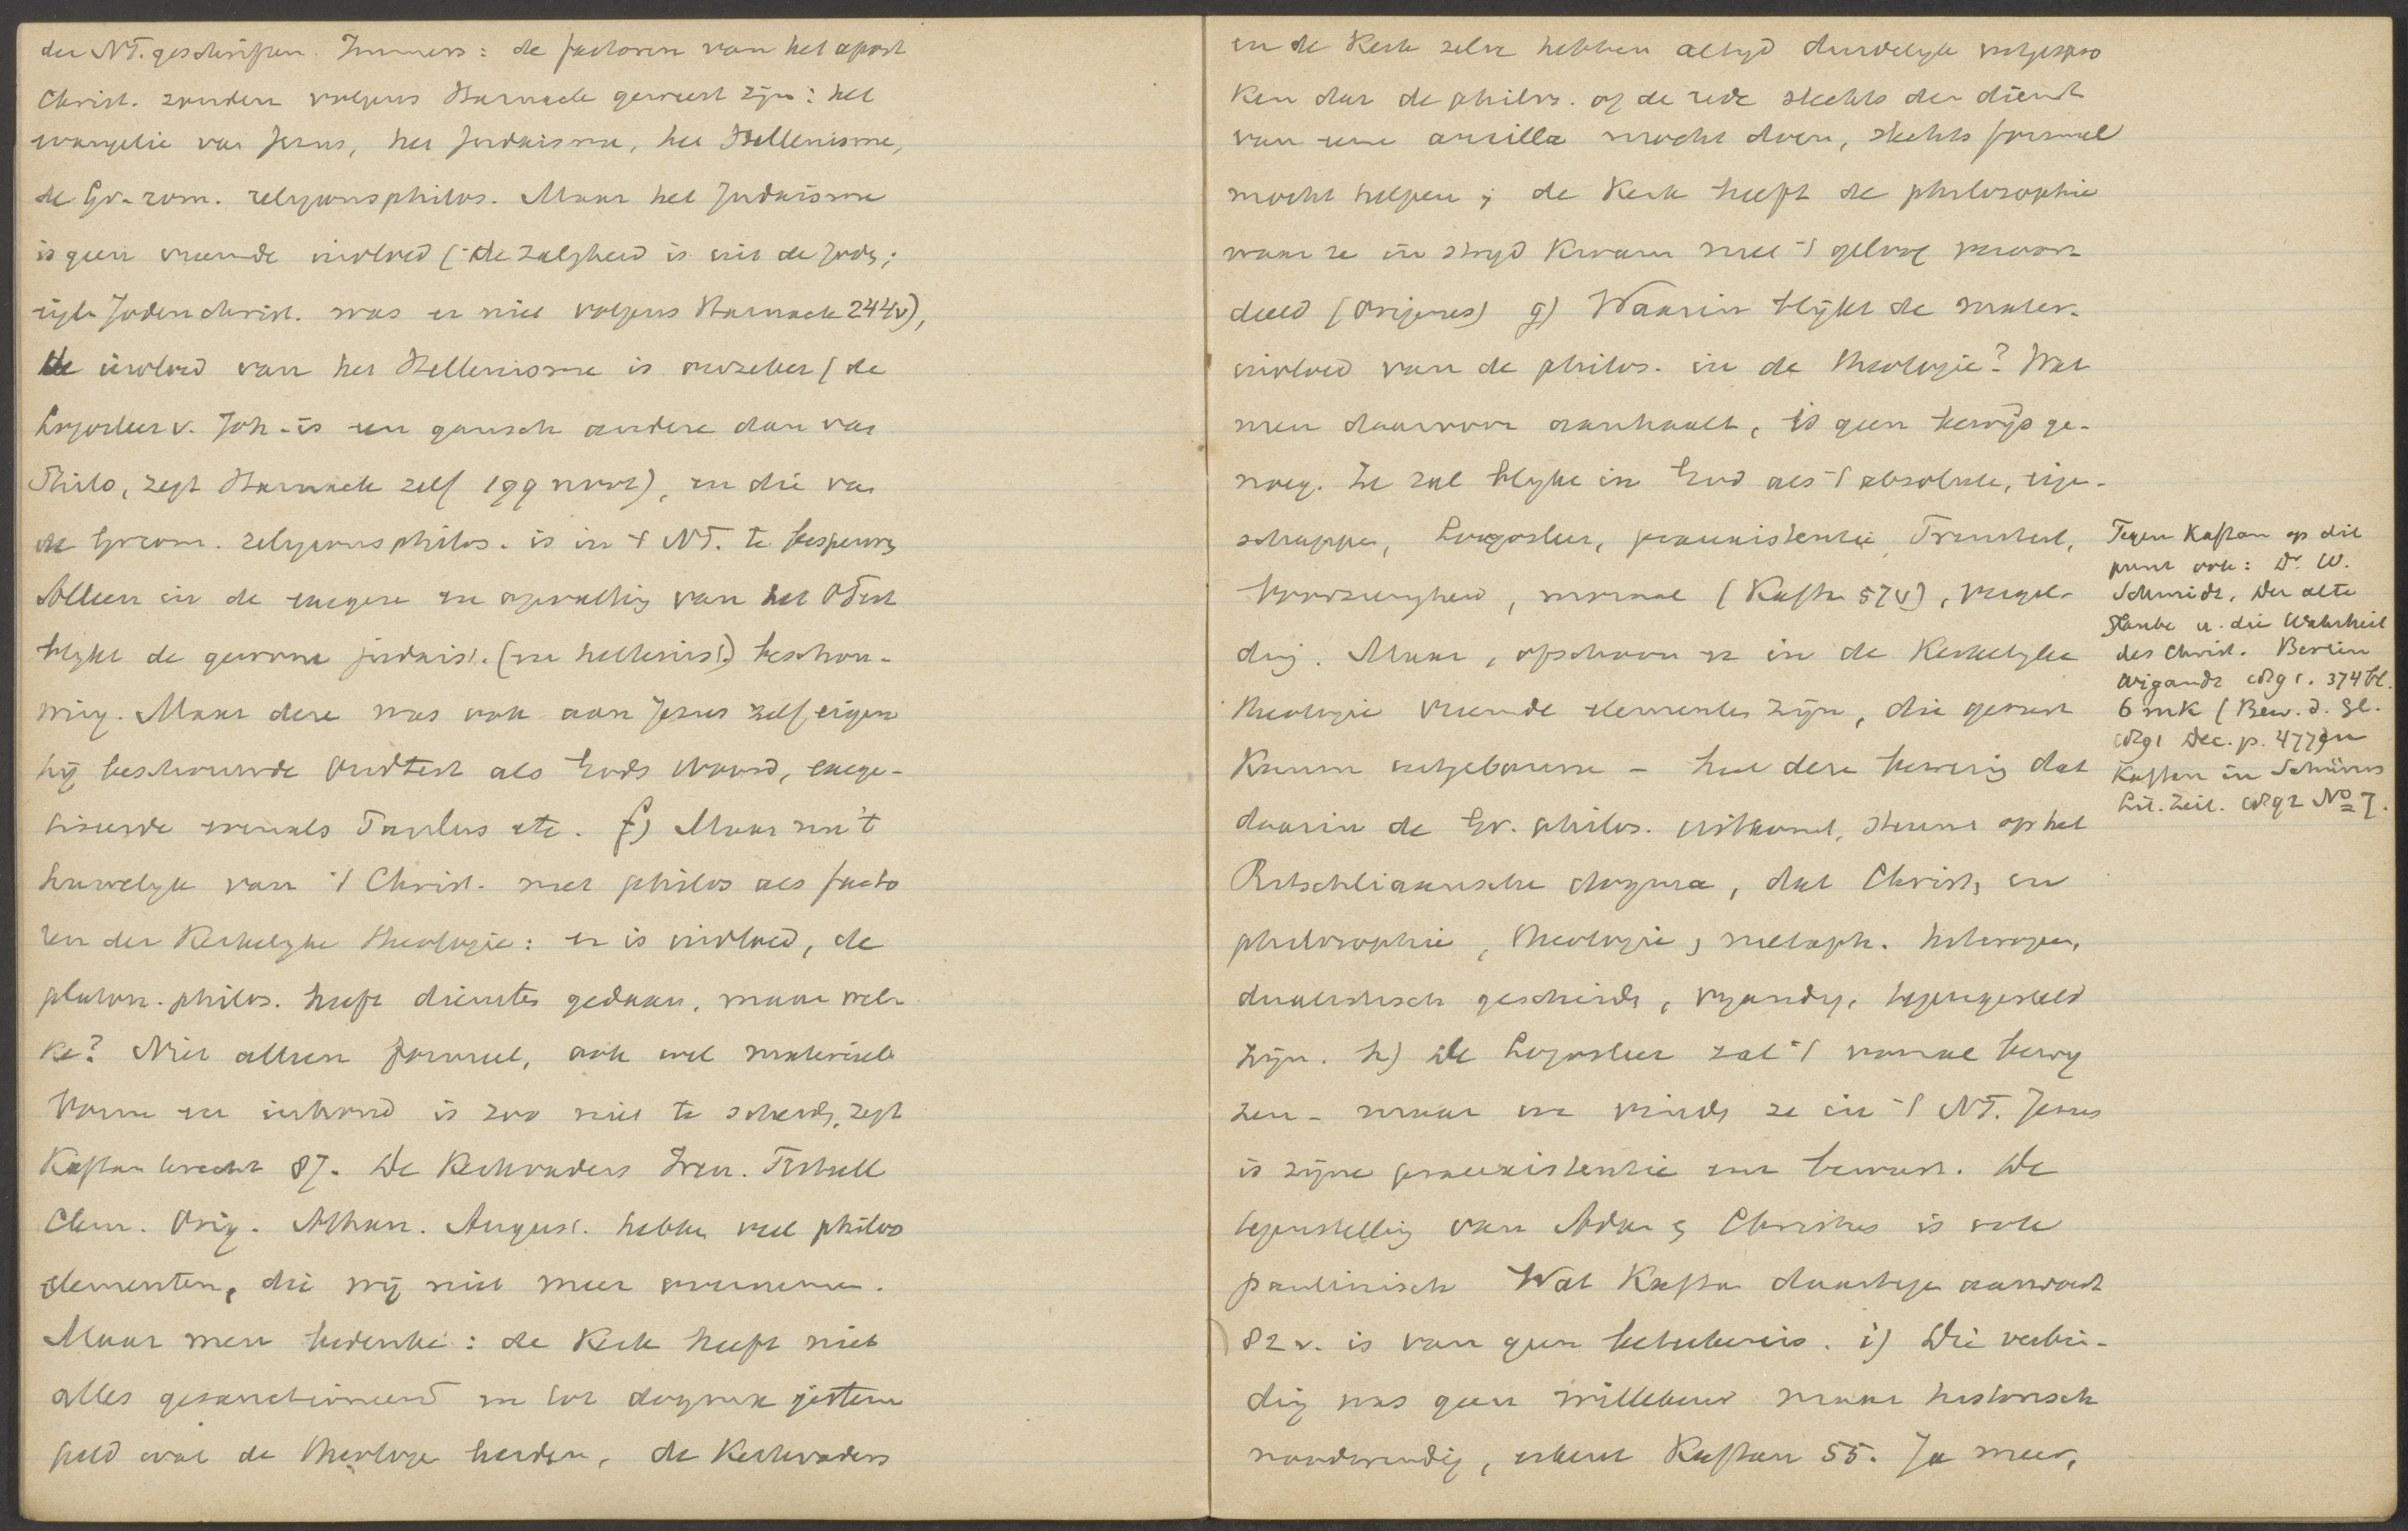 der NT. geschriften. Immers: de factoren van het apost
Christ. zouden volgens Harnack geweest zijn: het
evangelie van Jezus, het Judaisme, het Hellenisme,
de Gr.-rom. religionsphilos. Maar het Judaisme
is geen vreemde invloed (de zaligheid is uit de Jodn;
eigl. Joden christ. was er niet volgens Harnack 244v),
de invloed van het Hellenisme is onzeker (de
Logosleer v. Joh. is een gansch andere dan van
Philo, zegt Harnack zelf 199 noot), en die van
de Gr rom. religionsphilos. is in 't NT. te bespeuren
Alleen in de exegese en opvatting van het OTest
blijkt de gewone judaist. (en hellenist.) beschou-
wing. Maar deze was ook aan Jezus zelf eigen
hij beschouwde Oudtest als Gods Woord, exege-
tiseerde evenals Paulus etc. f) Maar nu 't
huwelijk van 't Christ. met philos als facto
ren der Kerkelijke theologie: er is invloed, de
platon. philos. heeft diensten gedaan, maar wel-
ke? Niet alleen formeel, ook wel materieel
Vorm en inhoud is zoo niet te scheidn, zegt
Kaftan terecht 87. De Kerkvaders Iren. Tertull
Clem. Orig. Athan. August. hebben veel philos
elementen, die wij niet meer overnemen.
Maar men bedenke: de Kerk heeft niet
alles gesanctioneerd en tot dogma gestem
peld wat de theologen leerden, de Kerkvaders
en de Kerk zelve hebben altijd duidelijk uitgespro
ken dat de philos. of de rede slechts den dienst
van eene ancilla mocht doen, slechts formeel
mocht helpen; de Kerk heeft de philosophie
waar ze in strijd kwam met 't geloof veroor-
deeld (Origenes) g) Waarin blijkt de mater.
invloed van de philos. in de theologie? Wat
men daarvoor aanhaalt, is geen bewijs ge-
noeg. Ze zal blijken in God als 't absolute, eigen-
schappen, Logosleer, praeexistentie, Triniteit,
Voorzienigheid, moraal (Kaftan 57v), vergel-
ding. Maar, ofschoon er in de Kerkelijke
theologie vreemde elementen zijn, die gerust
kunnen uitgebannen – heel deze bewering dat
daarin de Gr. philos. uitkomt, steunt op het
Ritschliaansche dogma, dat Christ, en
philosophie, theologie, metaph. heterogeen,
dualistisch gescheidn, vijandig, tegengesteld
zijn. h) De Logosleer zal 't vooral bewij
zen – maar we vindn ze in 't NT. Jezus
is zijne praeexistentie zich bewust. De
tegenstelling van Adam en Christus is ook
paulinisch Wat Kaftan daartegen aanvoert
82 v. is van geen beteekenis. i) Die verbin-
ding was geen willekeur maar historisch
noodwendig, erkent Kaftan 55. Ja meer,
Tegen Kaftan op dit
punt ook: Dr. W.
Schmidt, Der alte
Glaube u. die Wahrheit
des Christ. Berlin
Wigandt 1891. 374 bl.
6 mk (Bew. d. Gl.
1891 Dec. p. 477) en
Kaftan in Schürers
Lit. Zeit. 1892 No 7.